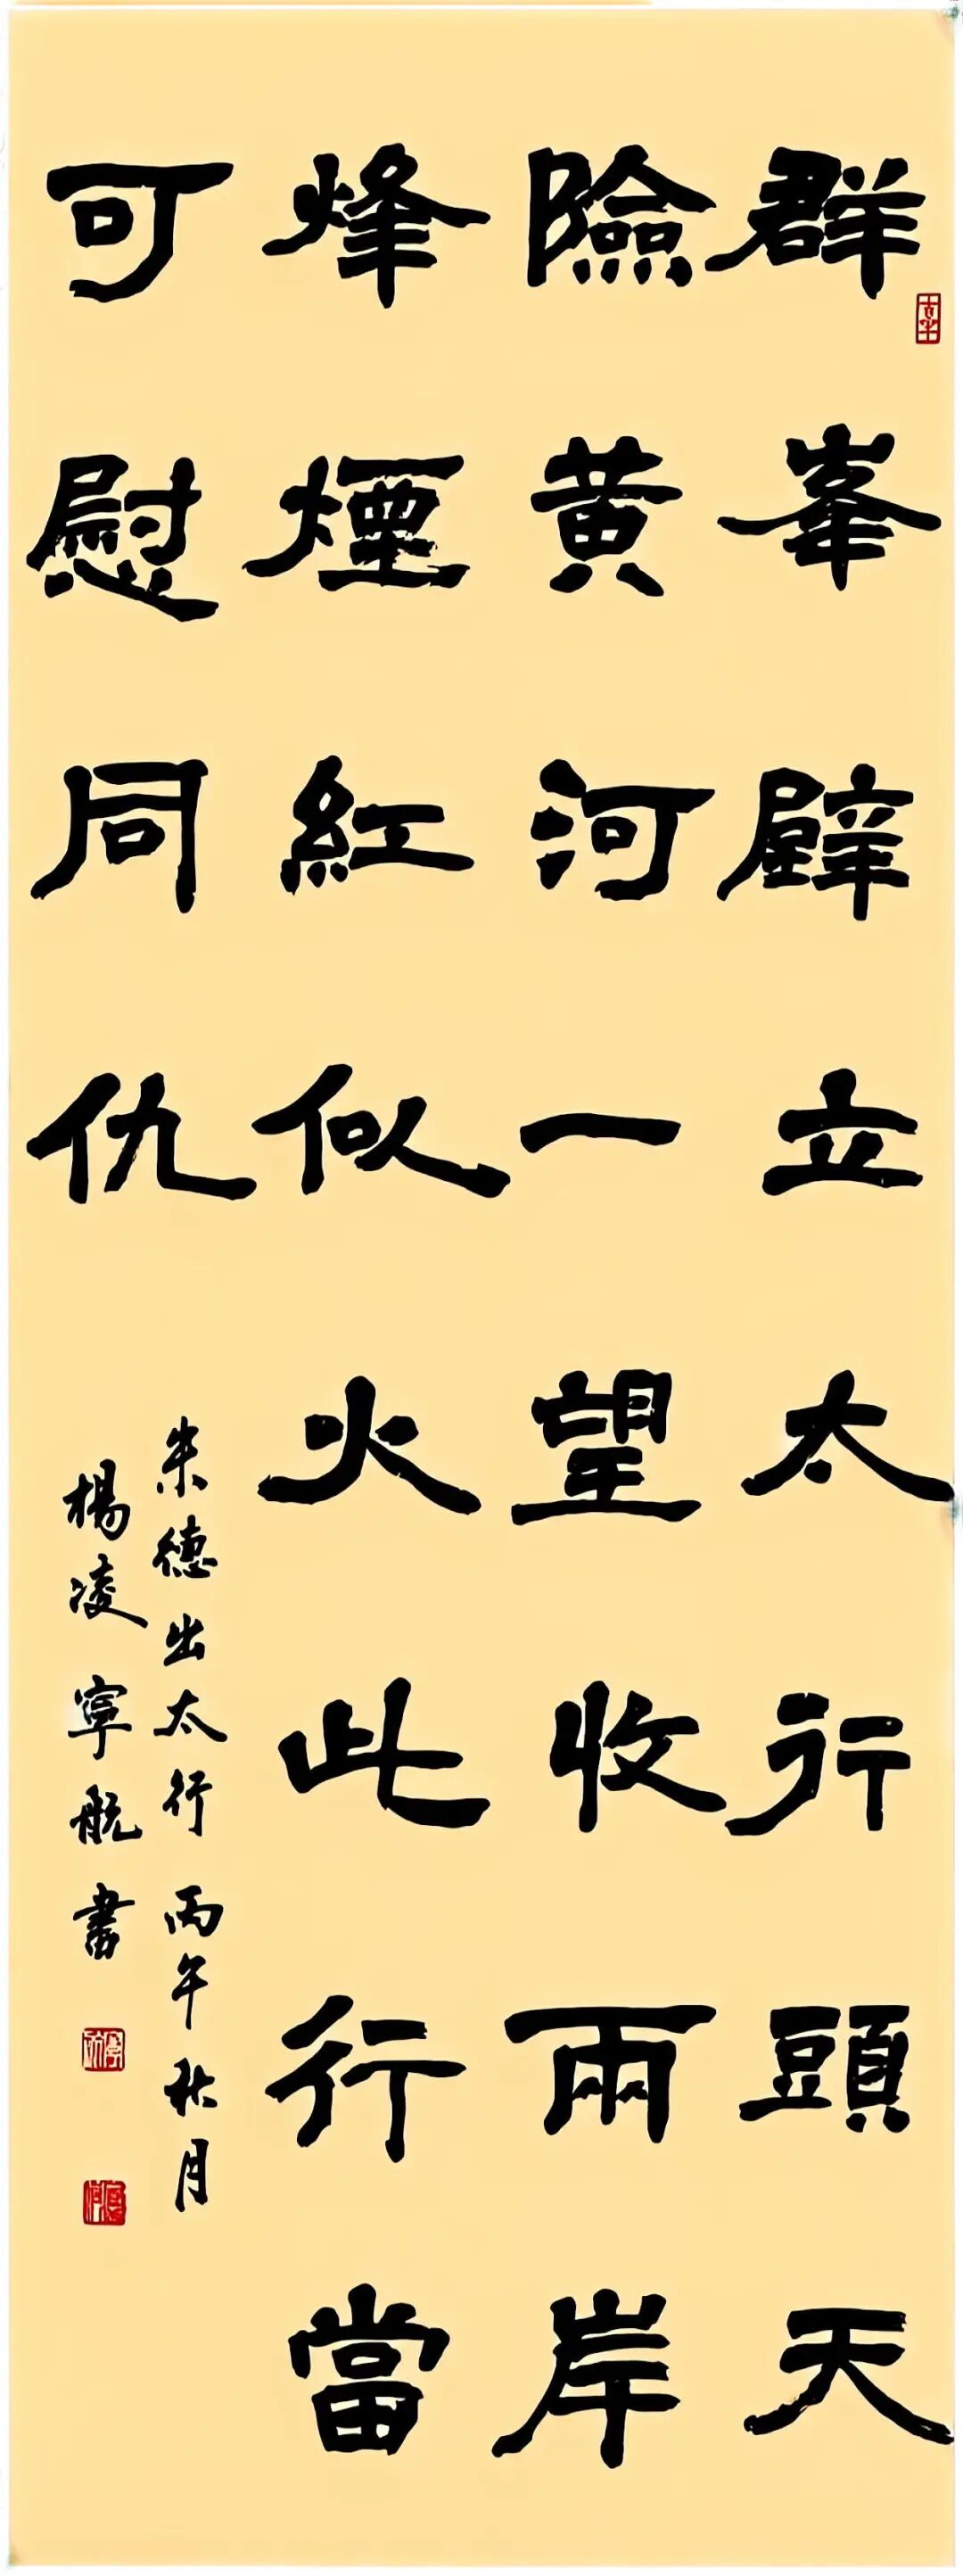 群峯壁立太行頭天
險黄河一望收兩岸
烽煙紅似火此行當
可慰同仇
朱德出太行 丙午秋月
楊凌寧航書